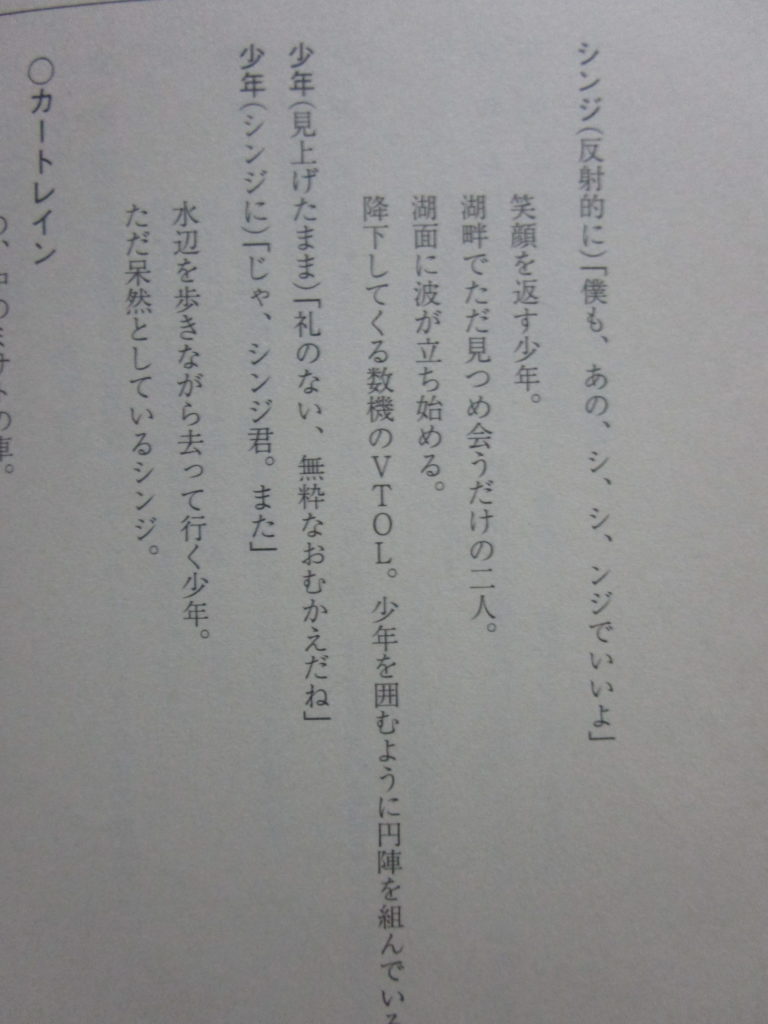 シンジ(反射的に)「僕も、あの、シ、シ、ンジでいいよ」
笑顔を返す少年。
湖畔でただ見つめ会うだけの二人。
湖面に波が立ち始める。
降下してくる数機のVTOL。少年を囲むように円陣を組んでいる
少年(見上げたまま)「礼のない、無粋なおむかえだね」
少年(シンジに)「じゃ、シンジ君。また」
水辺を歩きながら去って行く少年。
ただ呆然としているシンジ。
○カートレイン
の車。